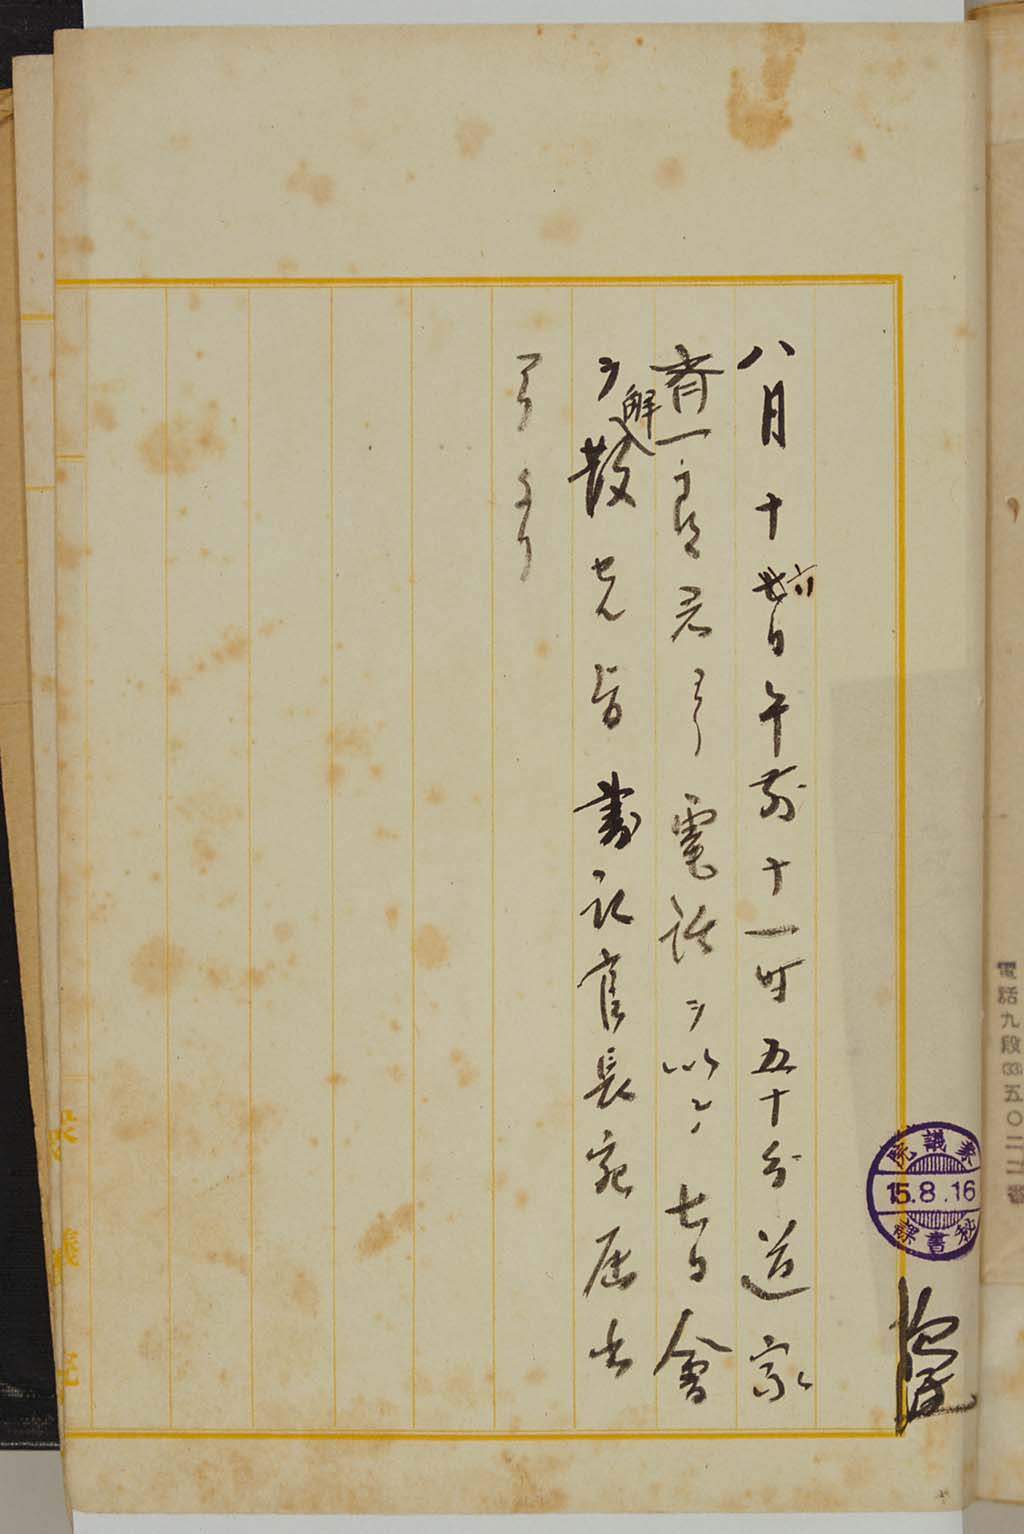 電話九段(33)五〇二二番
衆議院
15.8.16
秘書課
八月十六日午前十一时五十分道家
齊一郎君ヨリ電話ヲ以テ七日會
ヲ解散セル旨書記官長宛届出
アリタリ
衆議院